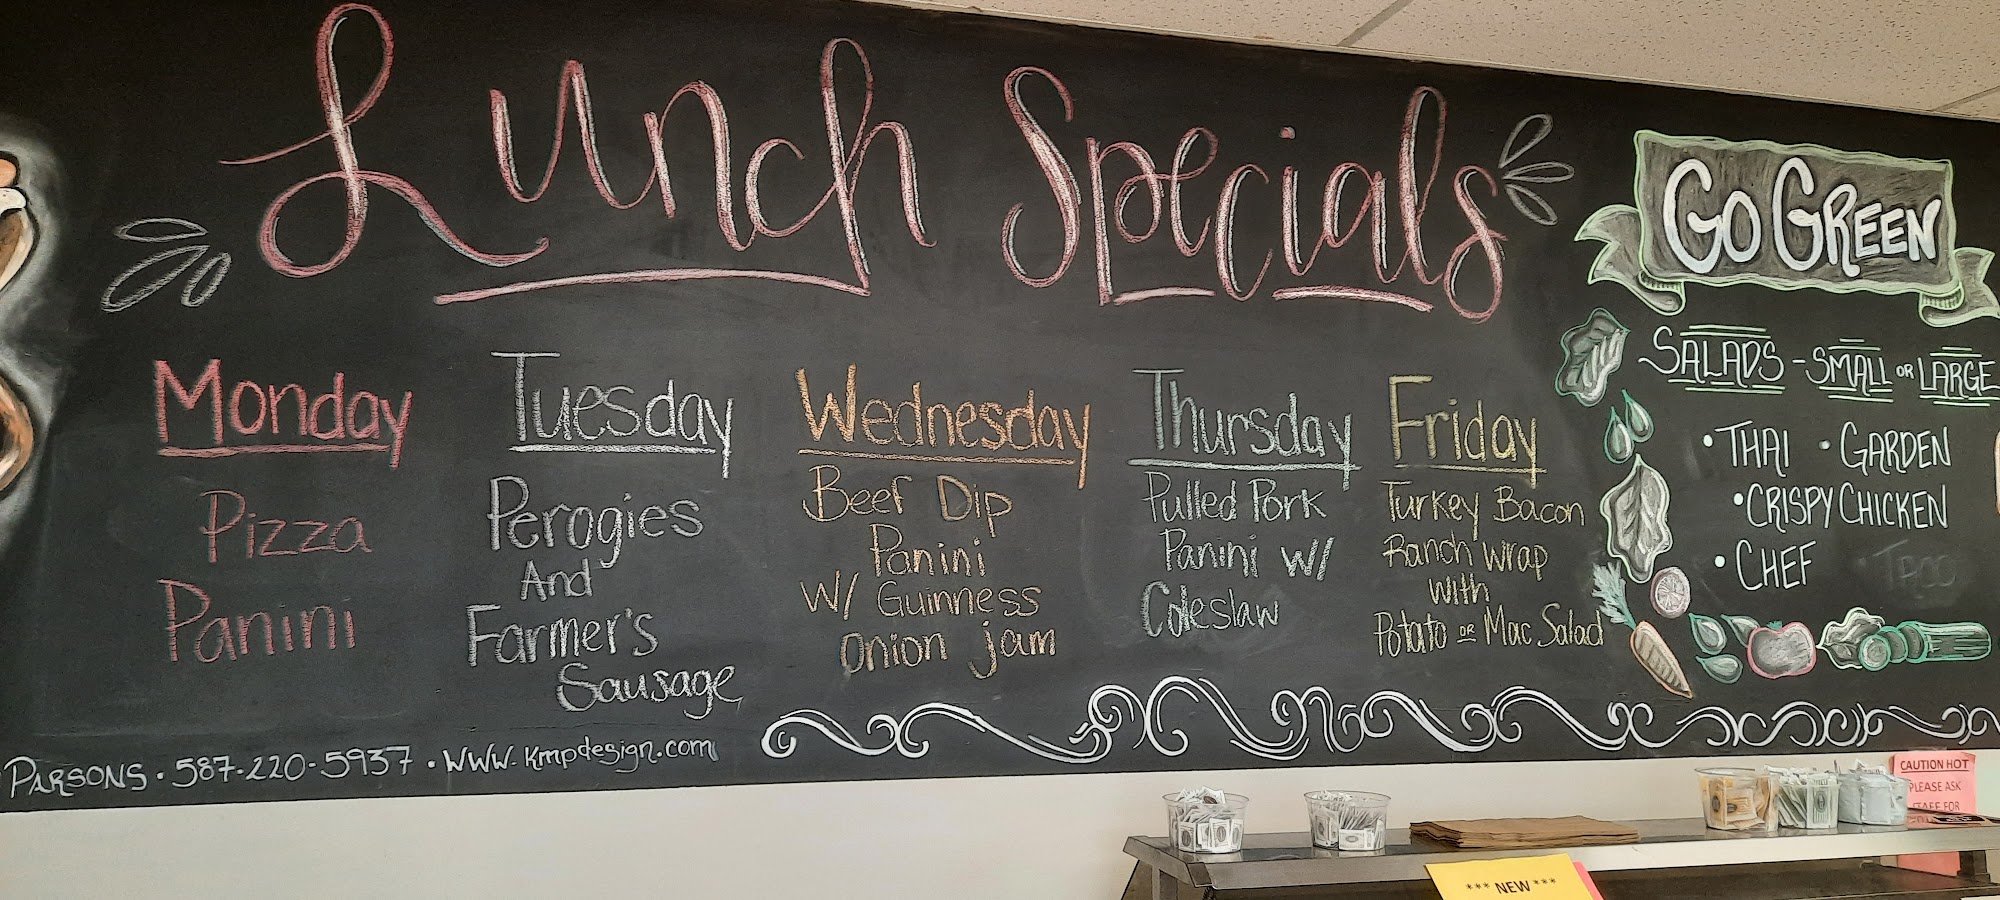 Lunch Specials
Monday
Pizza
Panini
Tuesday
Perogies
And
Farmer's
Sausage
Wednesday
Beef Dip
Panini
W/ Guinness
onion jam
Thursday
Pulled Pork
Panini w/
Coleslaw
Friday
Turkey Bacon
Ranch wrap
with
Potato or Mac. Salad
GO GREEN
SALADS - SMALL OR LARGE
• THAI • GARDEN
• CRISPY CHICKEN
• CHEF • TACO
PARSONS • 587-220-5937 • www.kmpdesign.com
CAUTION HOT
PLEASE ASK
STAFF FOR
*** NEW ***